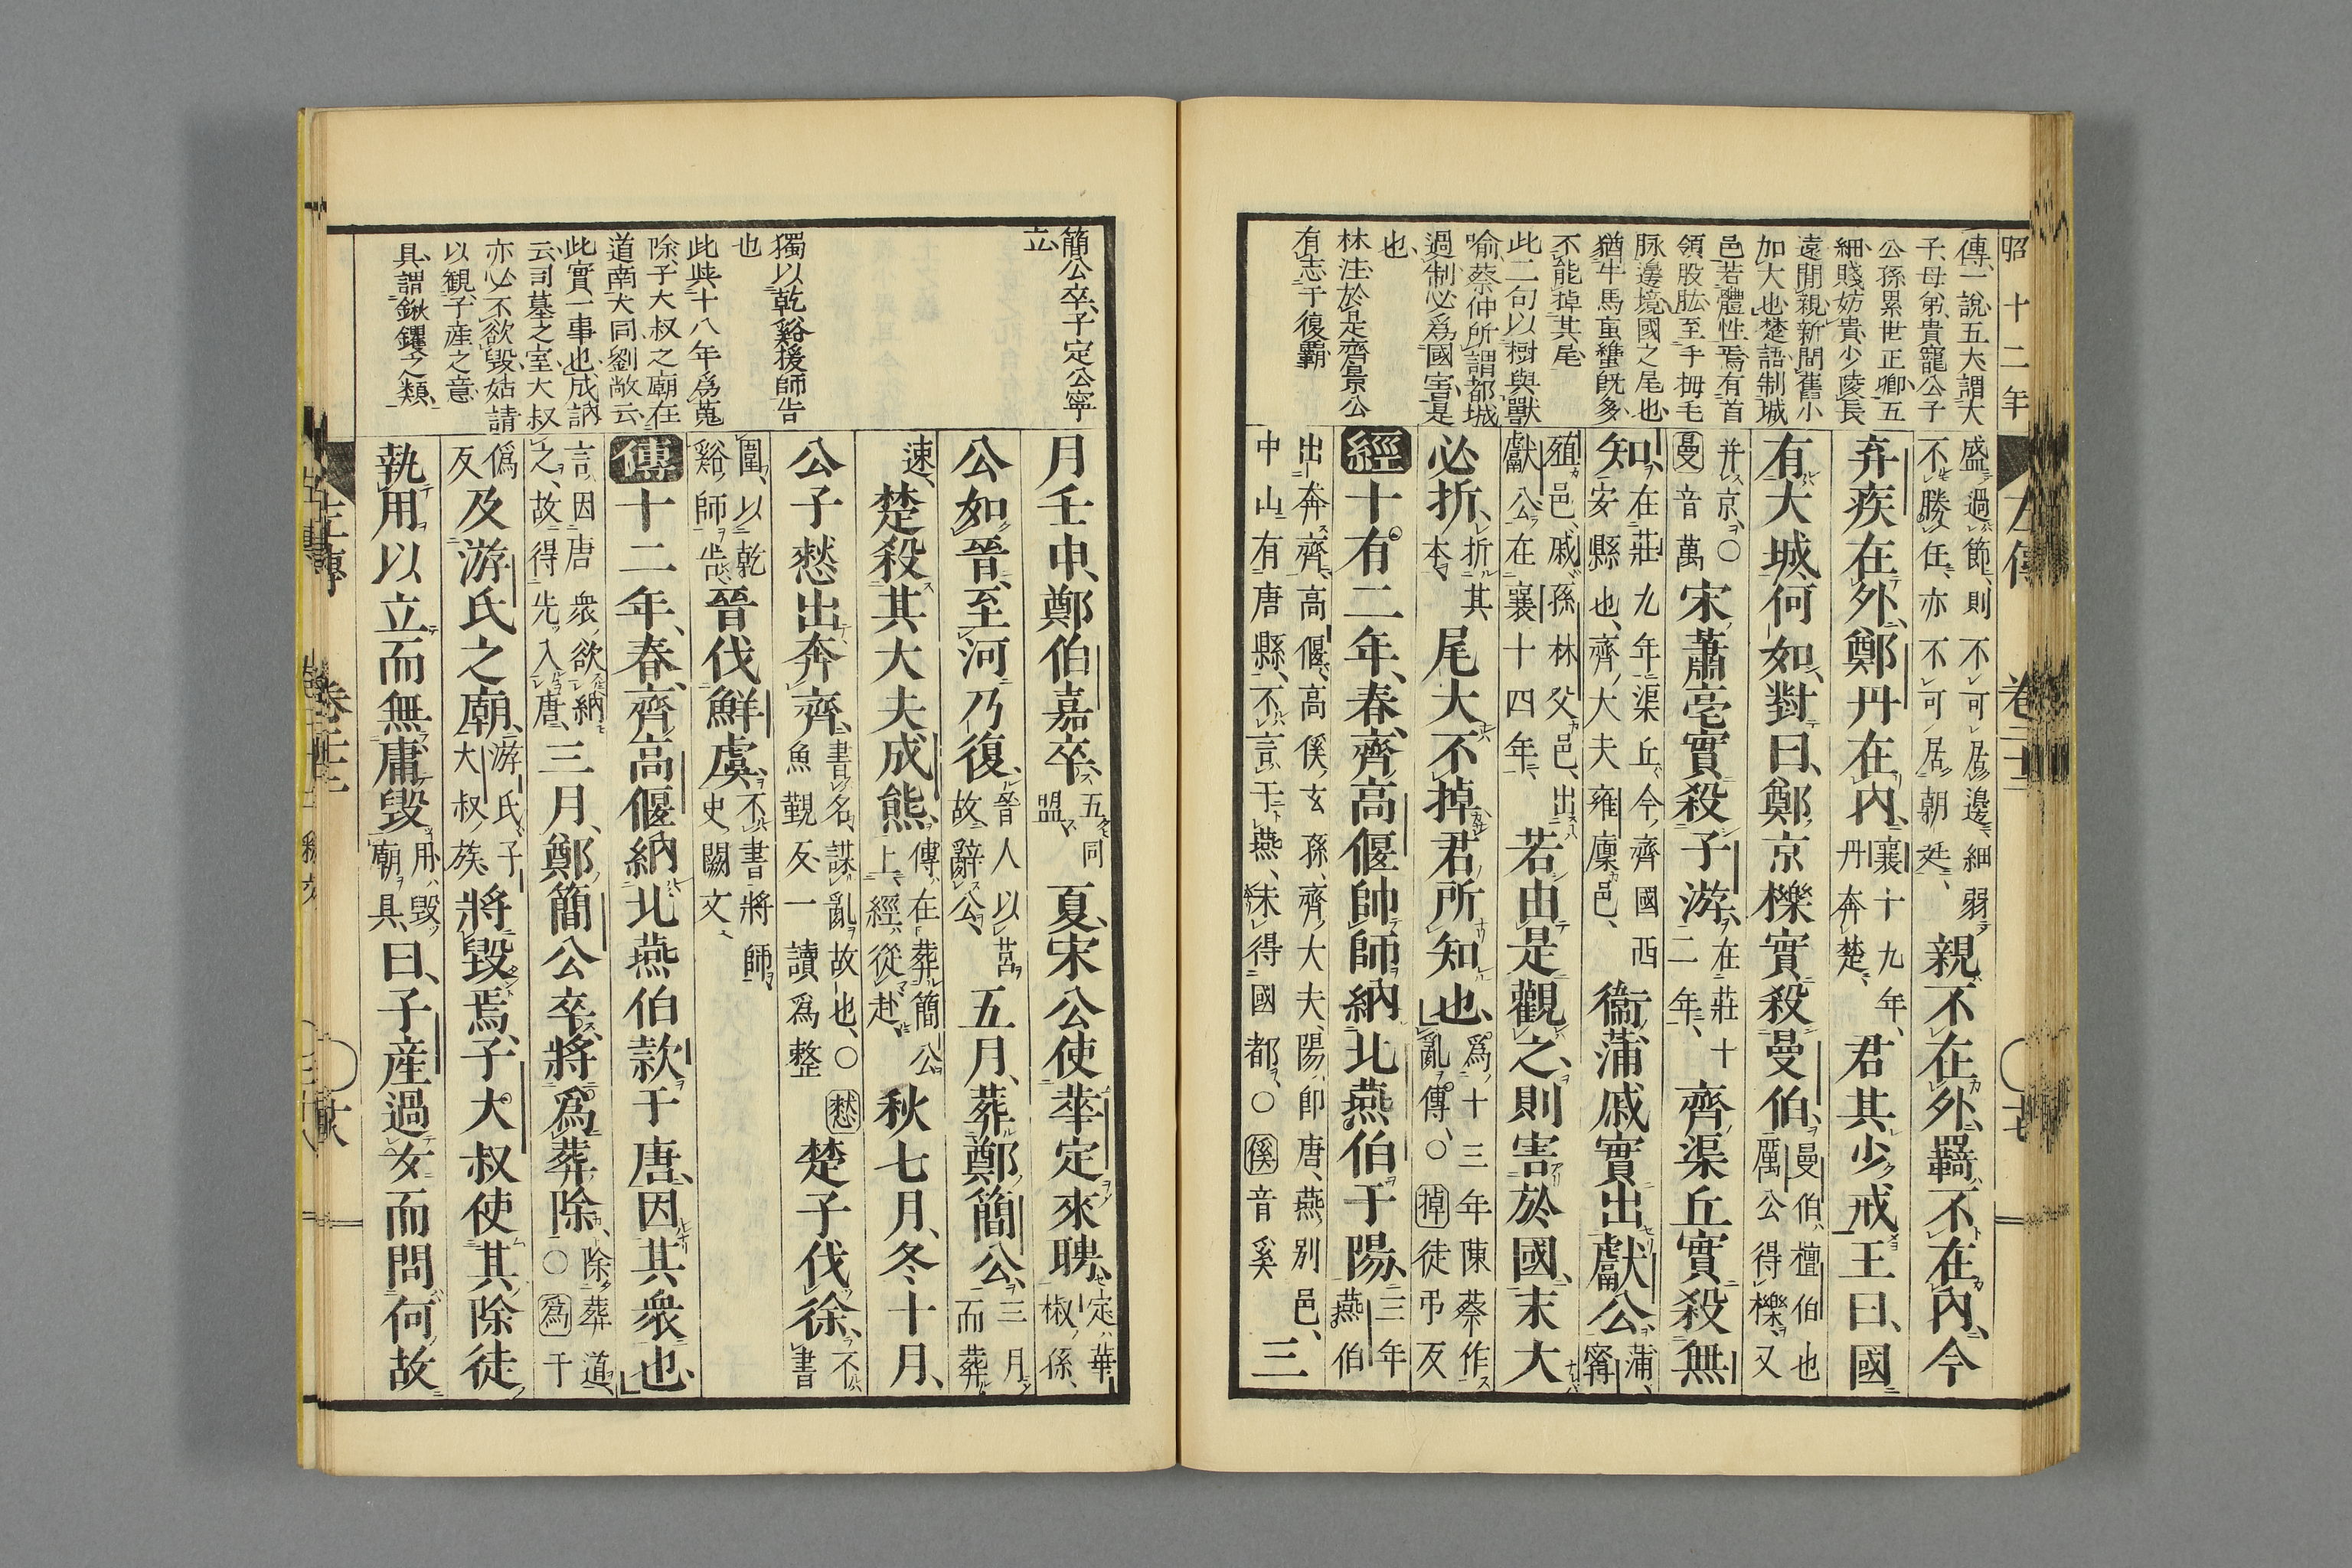 昭十二年
傳一說五大謂大
子母弟貴寵公子
公孫累世正卿五
細賤妨貴少陵長
遠間親新間舊小
加大也楚語制城
邑若體性焉有首
領股肱至手拇毛
脉邊境國之尾也
猶牛馬䖟𧔧既多
不能掉其尾
此二句以樹與獸
喻蔡仲所謂都城
過制必爲國害是
也
林注於是齊景公
有志于復霸
左傳 卷二十二
盛過節則不可居邊細弱
不勝任亦不可居朝廷
親不在外羇不在內今
弃疾在外鄭丹在內
襄十九年
丹奔楚
君其少戒王曰國
有大城何如對曰鄭京櫟實殺曼伯
曼伯檀伯也
厲公得櫟又
并京○
曼音萬
宋蕭亳實殺子游
在莊十
二年
齊渠丘實殺無
知
在莊九年渠丘今齊國西
安縣也齊大夫雍廩邑
衞蒲戚實出獻公
蒲
甯
殖邑戚孫林父邑出
獻公在襄十四年
若由是觀之則害於國末大
必折
折其
本
尾大不掉君所知也
爲十三年陳蔡作
亂傳○掉徒弔反
經十有二年春齊高偃帥師納北燕伯于陽
三年
燕伯
出奔齊高偃高傒玄孫齊大夫陽即唐燕別邑
中山有唐縣不言于燕未得國都○傒音奚
三
簡公卒子定公寧
立
獨以乾谿援師告
也
此與十八年爲蒐
除子大叔之廟在
道南大同劉敞云
此實一事也成訥
云司墓之室大叔
亦必不欲毀姑請
以觀子産之意
具謂鍬钁之類
月壬申鄭伯嘉卒
五同
盟
夏宋公使華定來聘
定華
椒孫
公如晉至河乃復
晉人以莒
故辭公
五月葬鄭簡公
三月
而葬
速
楚殺其大夫成熊
傳在葬簡公
上經從赴
秋七月冬十月
公子憖出奔齊
書名謀亂故也○憖
魚覲反一讀爲整
楚子伐徐
不
書
圍以乾
谿師告
晉伐鮮虞
不書將帥
史闕文
傳十二年春齊高偃納北燕伯款于唐因其衆也
言因唐衆欲納
之故得先入唐
三月鄭簡公卒將爲葬除
除葬道
○爲于
僞
反
及游氏之廟
游氏子
大叔族
將毀焉子大叔使其除徒
執用以立而無庸毀
用毀
廟具
曰子産過女而問何故
左傳 卷二十二